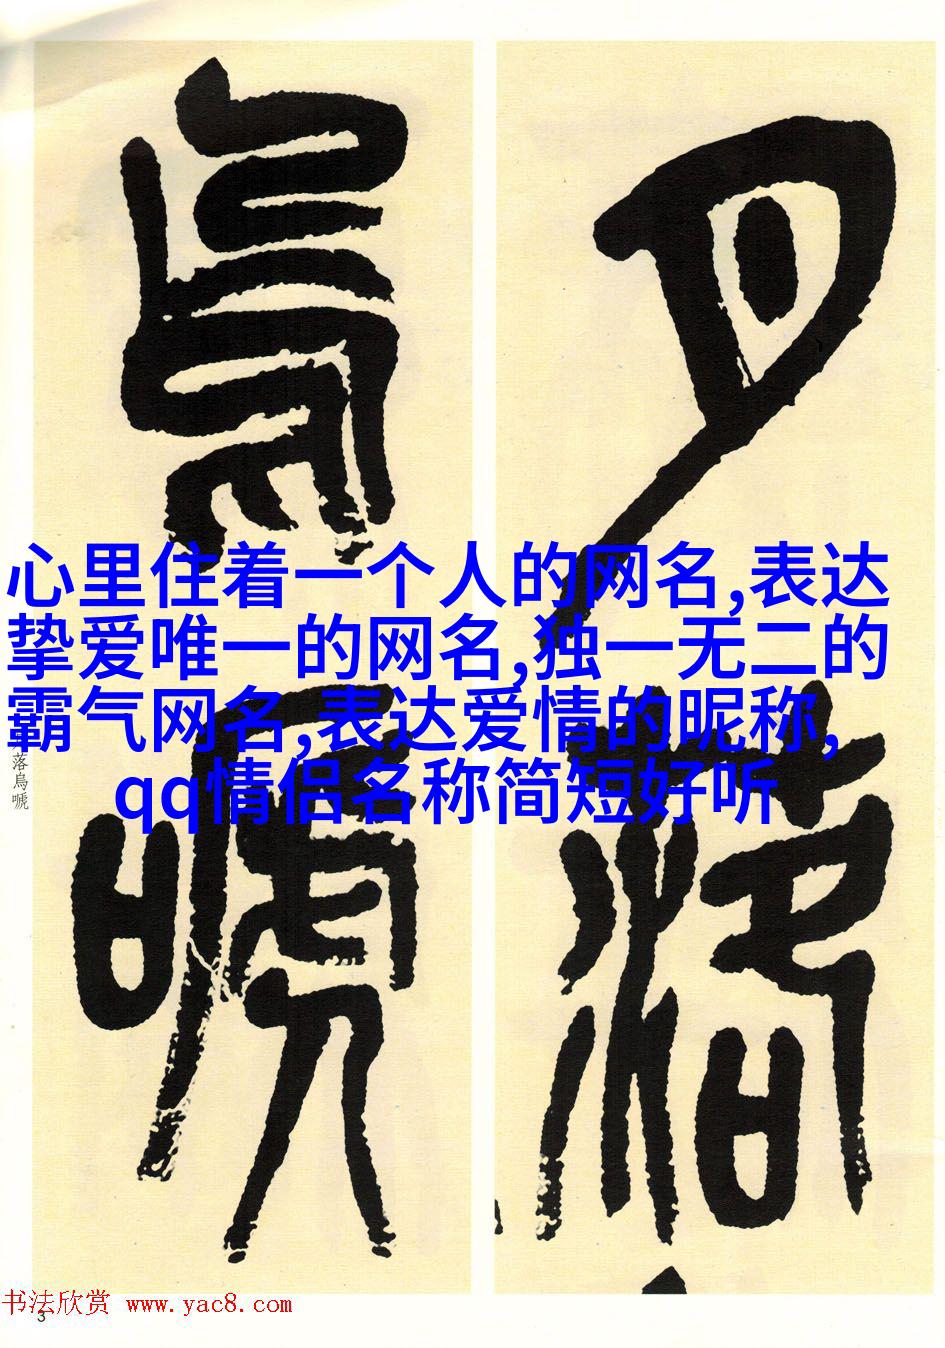 月落
烏嗁
心里住着一个人的网名,表达
挚爱唯一的网名,独一无二的
霸气网名,表达爱情的昵称,
qq情侣名称简短好听
落烏嗁
书法欣赏 www.yac8.com
3